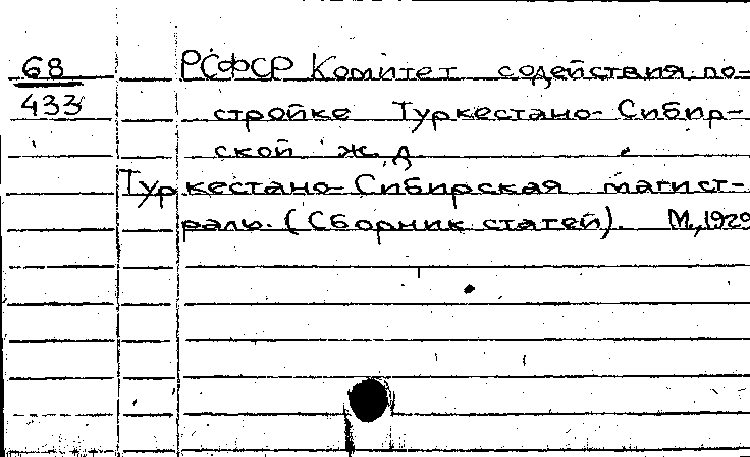 68
433
РСФСР Комитет содействия по-
стройке Туркестано-Сибир-
ской ж.д
Туркестано-Сибирская магист-
раль. (Сборник статей). М., 1929